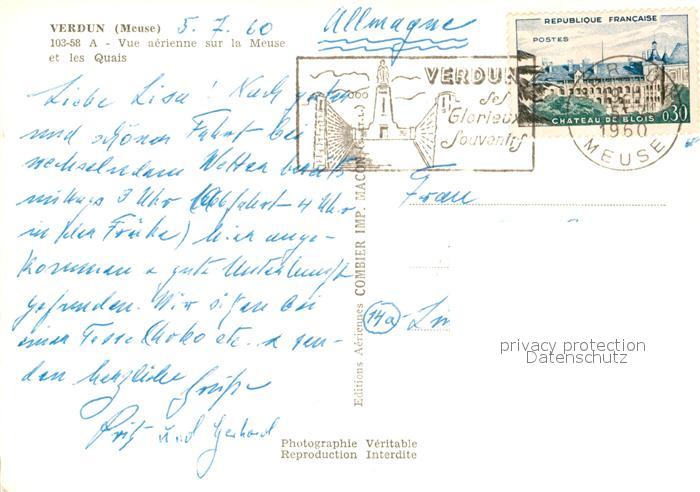 VERDUN (Meuse) 5. 7. 60
103-58 A - Vue aérienne sur la Meuse
et les Quais
Allmagne
REPUBLIQUE FRANÇAISE
POSTES
CHATEAU DE BLOIS 0,30
VERDUN
ses
Glorieux
Souvenirs
1960
MEUSE
Liebe Lisa! Nach guter
und schöner Fahrt bei
wechselndem Wetter bereits
mittags 3 Uhr (Abfahrt 4 Uhr
in der Frühe) hier ange-
kommen & gute Unterkunft
gefunden. Wir sitzen bei
einer Tasse Choko etc. & sen-
den herzliche Grüße
und Gerhard
Frau
14a
Editions Aériennes COMBIER IMP. MACON
Photographie Véritable
Reproduction Interdite
privacy protection
Datenschutz